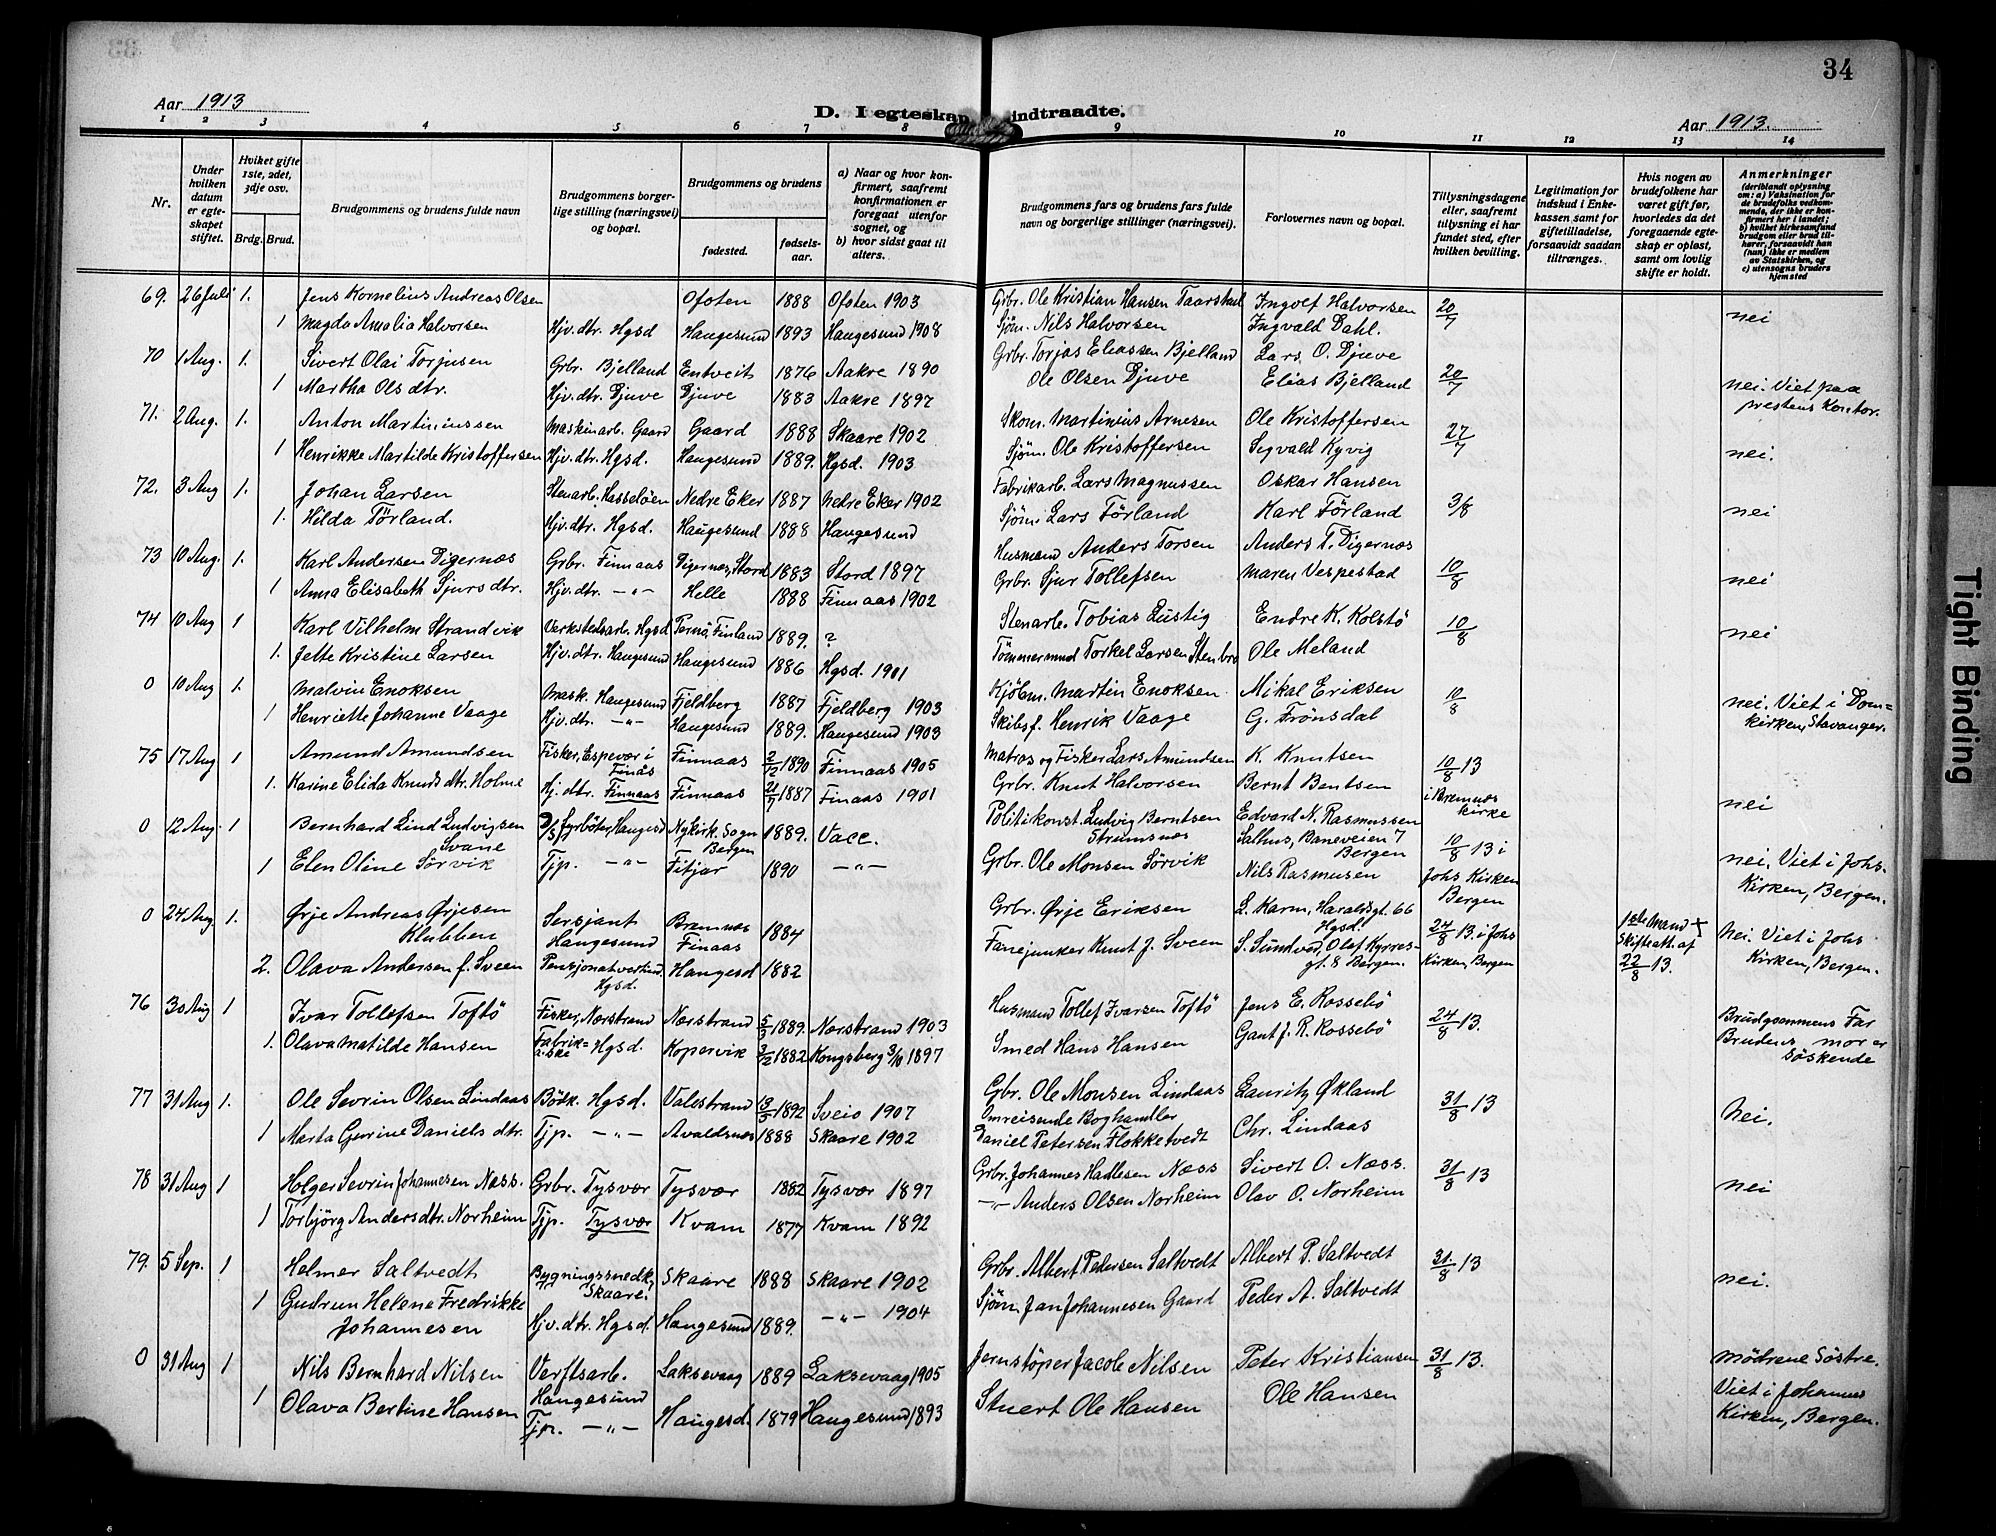 34
Aar 1913
D. I egteskap indtraadte.
Aar 1913.
1 2 3 4 5 6 7 8 9 10 11 12 13 14
Nr.
Under hvilken datum er egteskapet stiftet.
Hviket gifte 1ste, 2det, 3dje osv.
Brdg. Brud.
Brudgommens og brudens fulde navn
Brudgommens borgerlige stilling (næringsvei) og bopæl.
Brudgommens og brudens
fødested.
fødselsaar.
a) Naar og hvor konfirmert, saafremt konfirmationen er foregaat utenfor sognet, og
b) hvor sidst gaat til alters.
Brudgommens fars og brudens fars fulde navn og borgerlige stillinger (næringsvei).
Forlovernes navn og bopæl.
Tillysningsdagene eller, saafremt tillysning ei har fundet sted, efter hvilken bevilling.
Legitimation for indskud i Enkekassen samt for giftetilladelse, forsaavidt saadan tiltrænges.
Hvis nogen av brudefolkene har været gift før, hvorledes da det foregaaende egteskap er opløst, samt om lovlig skifte er holdt.
Anmerkninger
(deriblandt oplysning om: a) Vaksination for de brudefolks vedkommende, der ikke er konfirmert her i landet; b) hvilket kirkesamfund brudgom eller brud tilhører, forsaavidt han (hun) ikke er medlem av Statskirken, og c) utensogns bruders hjemsted
69. 26 Juli 1. Jens Kornelius Andreas Olsen Ofoten 1888 Ofoten 1903 Grbr. Ole Kristian Hansen Taarstad Ingvolf Halvorsen 20/7 nei
1 Magda Amalia Halvorsen Hjv. dtr. Hgsd Haugesund 1893 Haugesund 1908 Sjøm. Nils Halvorsen Ingvald Dahl.
70 1 Aug. 1. Sivert Olai Torjusen Grbr. Bjelland Entveit 1876 Aakre 1890 Grbr. Torjas Eliassen Bjelland Lars O. Djuve 20/7 nei. Viet paa
1 Martha Ols dtr. Hjv. dtr. Djuve Djuve 1883 Aakre 1897 Ole Olsen Djuve Elias Bjelland prestens kontor.
71. 2 Aug. 1. Anton Martiniussen Maskinarb. Gaard Gaard 1888 Skaare 1902 Skom. Martinius Arnesen Ole Kristoffersen 27/7 nei.
1 Henrikke Martilde Kristoffersen Hjv. dtr. Hgsd. Haugesund 1889. Hgsd. 1903 Sjøm. Ole Kristoffersen Segvald Kyvig
72. 3 Aug 1. Johan Larsen Stenarb. Hasseløen Nedre Eker 1887 Nedre Eker 1902 Fabrikarb. Lars Magnussen Oskar Hansen 3/8 nei
1. Hilda Tørland. Hjv. dtr. Hgsd. Haugesund 1888 Haugesund Sjøm. Lars Førland Karl Førland
73 10 Aug. 1. Karl Andersen Digernæs Grbr. Finnaas Digernæs, Stord 1883 Stord 1897 Husmand Anders Torsen Anders T. Digernæs 10/8 nei
1 Anna Elisabeth Sjurs dtr. Hjv. dtr. -"- Helle 1888 Finnaas 1902 Grbr. Sjur Tollefsen Maren Vespestad
74 10 Aug 1 Karl Vilhelm Strandvik Verkstedsarb. Hgsd Pernå, Finland 1889. ? Stenarb. Tobias Lustig Endre K. Kolstø 10/8 nei
1. Jette Kristine Larsen Hjv. dtr. Haugesund Haugesund 1886 Hgsd. 1901 Tømmermand Torkel Larsen Stenbro Ole Meland
0 10 Aug 1. Malvin Enoksen Mask. Haugesund Fjeldberg 1887 Fjeldberg 1903 Kjøbm. Martin Enoksen Mikal Eriksen 10/8 nei. Viet i Dom=
1 Henriette Johanne Vaage Hjv. dtr. -"- Haugesund 1889. Haugesund 1903 Skibsf. Henrik Vaage G. Frønsdal kirken, Stavanger.
75 17 Aug 1 Amund Amundsen Fisker, Espevær i Finås Finnaas 2/12 1890 Finnaas 1905 Matros og Fisker Lars Amundsen K. Knutsen 10/8 13 i Bremnæs kirke nei
1. Karine Elida Knuds dtr. Holme Hj. dtr. Finnaas Finnaas 21/7 1887 Finaas 1901 Grbr. Knut Halvorsen Bernt Bentsen
0 12 Aug. 1 Bernhard Lind Ludvigsen Svane D/S fyrbøter, Haugesd Nykirk. Sogn Bergen 1889. Vacc. Politikonst. Ludvig Berntsen Strømsnæs Edvard N. Rasmussen Salhus, Baneveien 7 Bergen 10/8 13 i Johs Kirken Bergen nei. Viet i Johs.
1 Elen Oline Sørvik Tjp. -"- Fitjar 1890 -"- Grbr. Ole Monsen Sørvik Nils Rasmusen Kirken, Bergen.
0 24 Aug. 1. Ørje Andreas Ørjesen Klubben Sersjant Haugesund Bremnæs Finaas 1884 Grbr. Ørje Eriksen L. Karm, Haraldsgt. 66 Hgsd. 24/8 13. i Johs Kirken, Bergen 1ste Mand + Skifteatt. af 22/8 13. Nei. Viet i Johs
2. Olava Andersen f. Sveen Pensjonatvertind. Hgsd. Haugesd 1882 Fanejunker Knut J. Sveen S. Sundved, Olaf Kyrresgt. 8 Bergen. Kirken, Bergen.
76 30 Aug 1 Ivar Tollefsen Toftø Fisker, Nærstrand Nærstrand 5/3 1889. Nærstrand 1903 Husmand Tollef Ivarsen Toftø Jens E. Rossebø 24/8 13. Brudgommens Far
1. Olava Matilde Hansen Fabrik= Hgsd. Kopervik 3/2 1882 Kongsberg 3/10 1897 Smed Hans Hansen Gant J. R. Rossebø Brudens mor er Søskende
77 31 Aug 1. Ole Sevrin Olsen Lindaas Bødk. Hgsd. Valestrand 13/5 1892 Sveio 1907 Grbr. Ole Monsen Lindaas Lauritz Økland 31/8 13 Nei.
1 Marta Gurine Daniels dtr. Tjp. -"- Avaldsnæs 1888 Skaare 1902 Omreisende Boghandler Daniel Petersen Flokketvedt Chr. Lindaas
78 31 Aug 1 Holger Sevrin Johannesen Næss. Grbr. Tysvær Tysvær 1882 Tysvær 1897 Grbr. Johannes Hadlesen Næss Sivert O. Næss. 31/8 13 nei
1 Torbjørg Andersdtr. Norheim Tjp. Tysvær Kvam 1877 Kvam 1892 -"- Anders Olsen Norheim Olav O. Norheim
79. 5 Sep. 1 Helmer Saltvedt Bygningssnedk, Skaare Skaare 1888 Skaare 1902 Grbr. Albert Pedersen Saltvedt Albert P. Saltvedt 31/8 13 nei.
1 Gudrun Helene Fredrikke Johannesen Hjv. dtr. Hgsd. Haugesund 1889. -"- 1904 Sjøm. Jan Johannesen Gaard Peder A. Saltvedt
0 31 Aug 1 Nils Bernhard Nilsen Verftsarb. Haugesund Laksevaag 1889 Laksevaag 1905 Jernstøper Jacob Nilsen Peter Kristiansen 31/8 13. Mødrene Søstre.
1 Olava Bertine Hansen Tjp. -"- Haugesd. 1879 Haugesund 1893 Stuert Ole Hansen Ole Hansen Viet i Johannes Kirken, Bergen.
Tight Binding